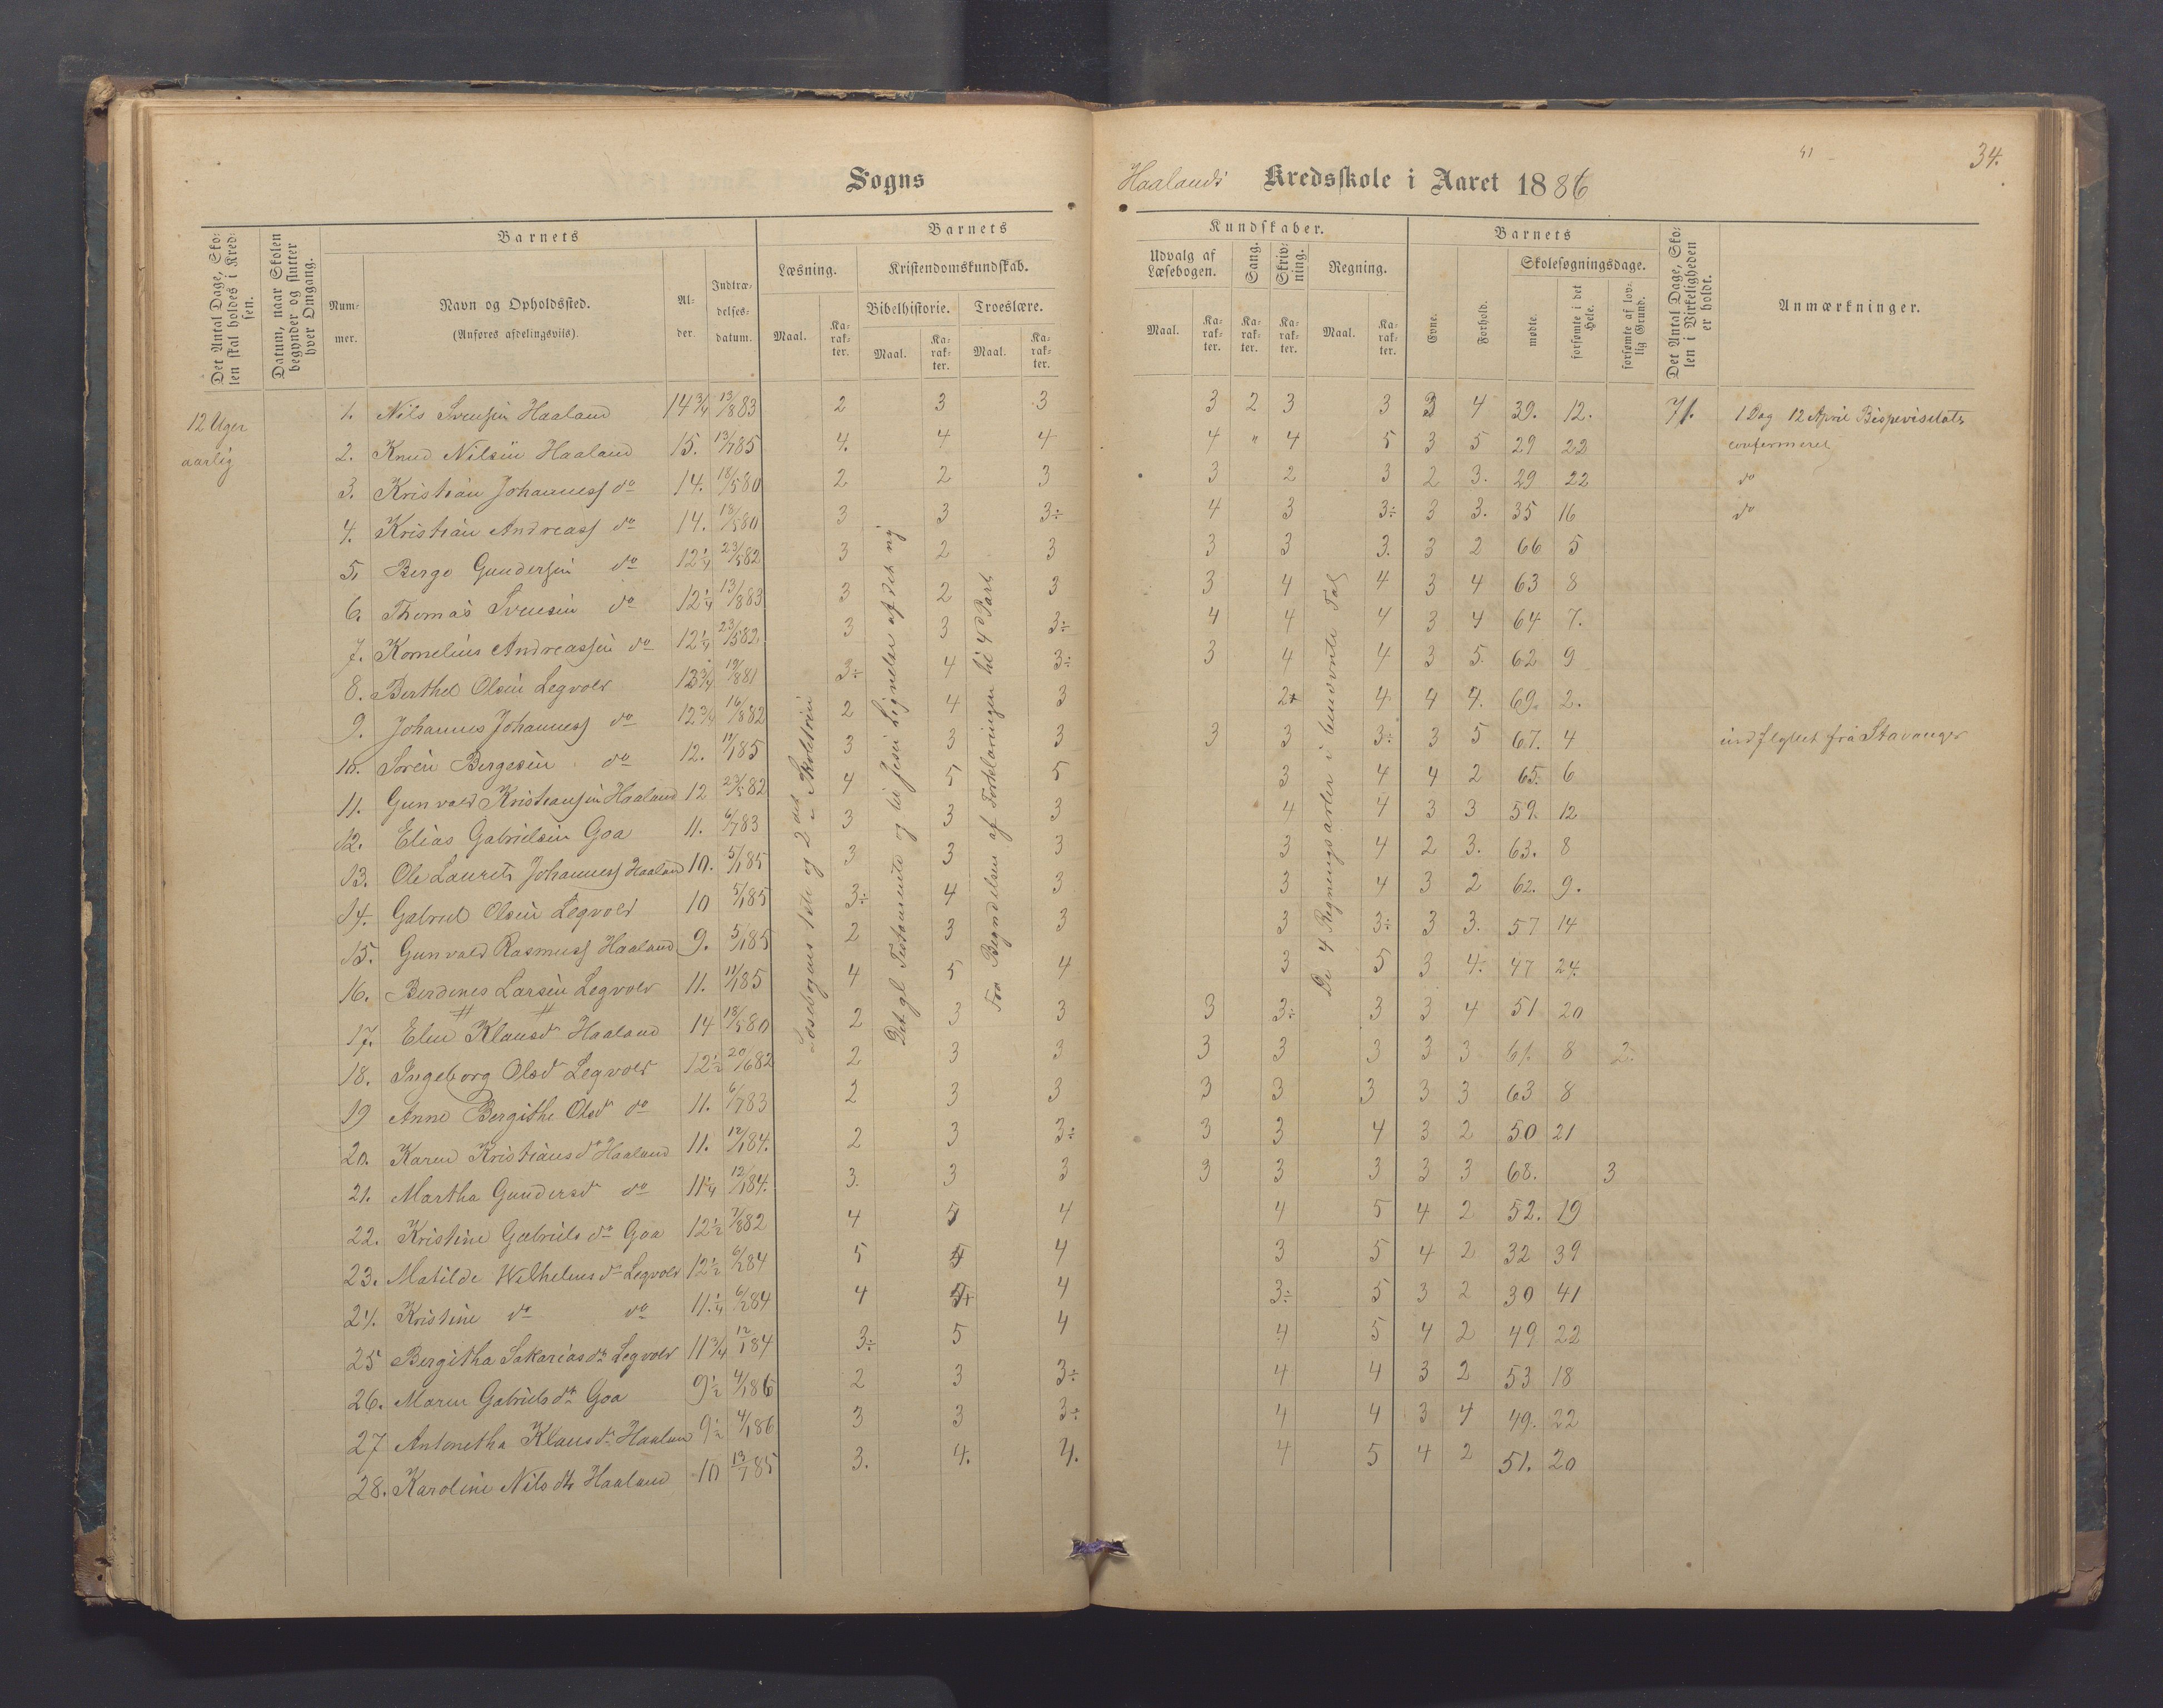 41
34.
Sogns Haalands Kredsskole i Aaret 1886
Det Antal Dage, Sko-
len skal holdes i Kred-
sen.
Datum, naar Skolen
begynder og slutter
hver Omgang.
Barnets
Num-
mer.
Navn og Opholdssted.
(Anføres afdelingsviis).
Al-
der.
Indtræ-
delses-
datum.
Barnets
Læsning.
Maal.
Ka-
rak-
ter.
Kristendomskundskab.
Bibelhistorie.
Maal.
Ka-
rak-
ter.
Troeslære.
Maal.
Ka-
rak-
ter.
Kundskaber.
Udvalg af
Læsebogen.
Maal.
Ka-
rak-
ter.
Sang.
Ka-
rak-
ter.
Skriv-
ning.
Ka-
rak-
ter.
Regning.
Maal.
Ka-
rak-
ter.
Barnets
Evne.
Forhold.
Skolesøgningsdage.
mødte.
forsømte i det
Hele.
forsømte af lov-
lig Grund.
Det Antal Dage, Sko-
len i Virkeligheden
er holdt.
Anmærkninger.
12 Uger
aarlig
Læsebogens 1ste og 2det Skoletrin
Det gl. Testamente og til Jesu Lignelser af det ny
Fra Begyndelsen af Forklaringen til 4d Part
De 4 Regningsarter i benævnte Tal
1. Nils Svensen Haaland 14 3/4 13/8 83 2 3 3 3 2 3 3 3 4 39. 12. 71. 1 Dag 12 April Bispevisitats
2. Knud Nilsen Haaland 15. 13/7 85 4. 4 4 4 " 4 5 3 5 29 22 confermeret
3. Kristian Johanness do 14. 18/5 80 2 2 3 3 2 3 2 3. 29 22 do
4. Kristian Andreass do 14. 18/5 80 3 3 3÷ 4 3 3÷ 3 3. 35 16 do
5. Berge Gundersen do 12 1/4 23/5 82 3 2 3 3 3 3. 3 2 66 5
6. Thomas Svensen do 12 1/4 13/8 83 3 2 3 3 4 4 3 4 63 8
7. Kornelius Andreassen do 12 1/4 23/5 82. 3 3 3÷ 4 4 4 3 4 64 7.
8. Berthel Olsen Legvold 13 3/4 19/8 81 3÷ 4 3÷ 3 4 4 3 5. 62 9
9. Johannes Johanness do 12 3/4 16/8 82 2 4 3 2+ 4 4 4. 69. 2.
10. Sören Bergesen do 12. 11/1 85 3 3 3 3 3 3÷ 3 5 67. 4 indflyttet fra Stavanger
11. Gunvald Kristiansen Haaland 12 23/5 82 4 5 5 3 4 4 2 65. 6
12. Elias Gabrielsen Goa 11. 6/7 83 3 3 3 4 4 3 3 59. 12
13. Ole Laurits Johanness Haaland 10. 5/1 85 3 3 3 3 4 2 3. 63. 8
14. Gabriel Olsen Legvold 10 5/1 85 3÷ 4 3 3 4 3 2 62. 9.
15. Gunvald Rasmuss Haaland 9. 5/1 85 2 3 3 3 3÷ 3 3. 57 14
16. Berdines Larsen Legvold 11. 11/1 85 4 5 4 3 5 3 4. 47 24.
17. Elen Klausd Haaland 14 18/5 80 2 3 3 3 3÷ 3 3 4 51 20
18. Ingeborg Olsd Legvold 12 1/2 20/6 82 2 3 3 3 3 3 3 3 61. 8 2.
19 Anne Bergithe Olsd do 11. 6/7 83 2 3 3 3 3 3 3 3 63 8
20. Karen Kristiansd Haaland 11. 12/1 84. 2 3 3÷ 3 3 4 3 2 50 21
21. Martha Gundersd do 11 1/4 12/1 84. 3. 3 3 3 3 3 3 3 68. 3
22. Kristine Gabriels dr Goa 12 1/2 7/8 82 4 5 4 4 5 4 2 52. 19
23. Matilde Wilhelms dr Legvold 12 1/2 6/2 84 5 5 4 3 5 4 2 32 39
24. Kristine do do 11. 1/4 6/2 84 4 4 3÷ 5 3 2 30 41
25 Bergitha Sakarias dr Legvold 11 3/4 12/1 84 3÷ 5 4 4 5 4 2 49 22
26. Maren Gabriels dr Goa 9 1/2 4/1 86 2 3 3÷ 4 4 3 2 53 18
27 Antonetha Klaus dr Haaland 9 1/2 4/1 86 3 3 3÷ 4 4 3 4 49. 22
28. Karoline Nils dtr Haaland 10 13/7 85 3. 4. 4. 4 5 4 2 51. 20